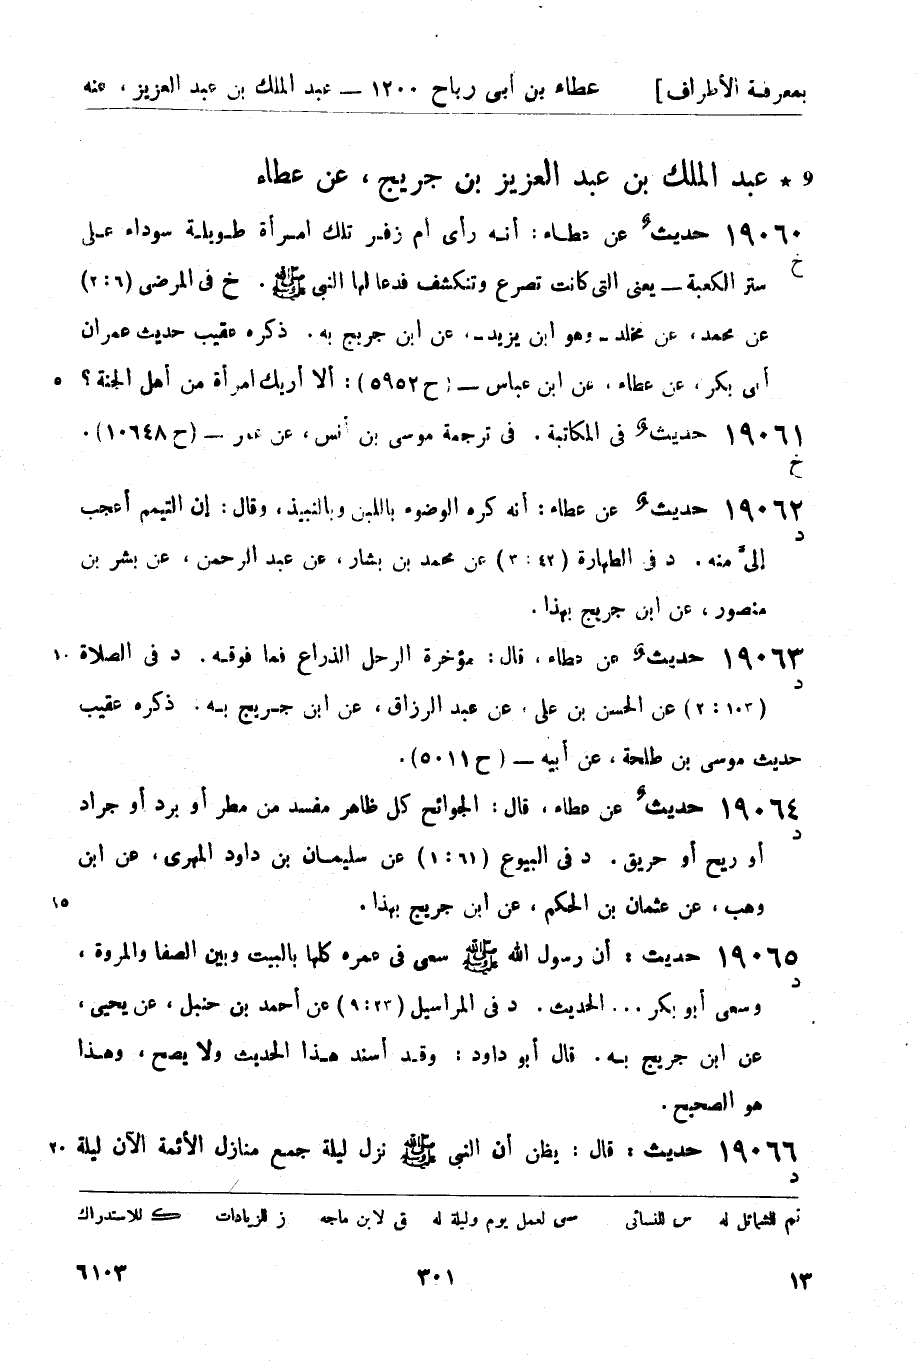 بمعرفة الأطراف] عطاء بن أبى رباح ١٢٠٠ — عبد الملك بن عبد العزيز ، عنه
٩ * عبد الملك بن عبد العزيز بن جريج ، عن عطاء
١٩٠٦٠ حديثٌ عن عطاء : أنه رأى أم زفر تلك امرأة طويلة سوداء على
خ
ستر الكعبة — يعنى التى كانت تصرع وتنكشف فدعا لها النبى ﷺ . خ فى المرضى (٦ : ٢)
عن محمد، عن مخلد - وهو ابن يزيد -، عن ابن جريج به. ذكره عقيب حديث عمران
أبى بكر ، عن عطاء ، عن ابن عباس — (ح ٥٩٥٢) : ألا أريك امرأة من أهل الجنة ؟ ٥
١٩٠٦١ حديثٌ فى المكاتبة . فى ترجمة موسى بن أنس ، عن عمر — (ح ١٠٦٤٨).
خ
١٩٠٦٢ حديثٌ عن عطاء : أنه كره الوضوء باللبن وبالنبيذ، وقال : إن التيمم أعجب
د
إلىَّ منه . د فى الطهارة (٤٢ : ٣) عن محمد بن بشار ، عن عبد الرحمن ، عن بشر بن
منصور ، عن ابن جريج بهذا .
١٩٠٦٣ حديثٌ عن عطاء ، قال : مؤخرة الرحل الذراع فما فوقه . د فى الصلاة ١٠
د
(١٠٣ : ٢) عن الحسن بن على ، عن عبد الرزاق ، عن ابن جريج به . ذكره عقيب
حديث موسى بن طلحة ، عن أبيه — (ح ٥٠١١).
١٩٠٦٤ حديثٌ عن عطاء ، قال : الجوائح كل ظاهر مفسد من مطر أو برد أو جراد
د
أو ريح أو حريق . د فى البيوع (٦١ : ١) عن سليمان بن داود المهرى ، عن ابن
وهب ، عن عثمان بن الحكم ، عن ابن جريج بهذا . ١٥
١٩٠٦٥ حديث : أن رسول الله ﷺ سعى فى عمره كلها بالبيت وبين الصفا والمروة ،
د
وسعى أبو بكر ... الحديث . د فى المراسيل (٢٣ : ٩) عن أحمد بن حنبل ، عن يحيى ،
عن ابن جريج به . قال أبو داود : وقد أسند هذا الحديث ولا يصح ، وهذا
هو الصحيح .
١٩٠٦٦ حديث : قال : يظن أن النبى ﷺ نزل ليلة جمع منازل الأئمة الآن ليلة ٢٠
د
تم للشمائل له س للنسائى سى لعمل يوم وليلة له ق لابن ماجه ز للزيادات ك للاستدراك
١٣ ٣٠١ ٦١٠٣